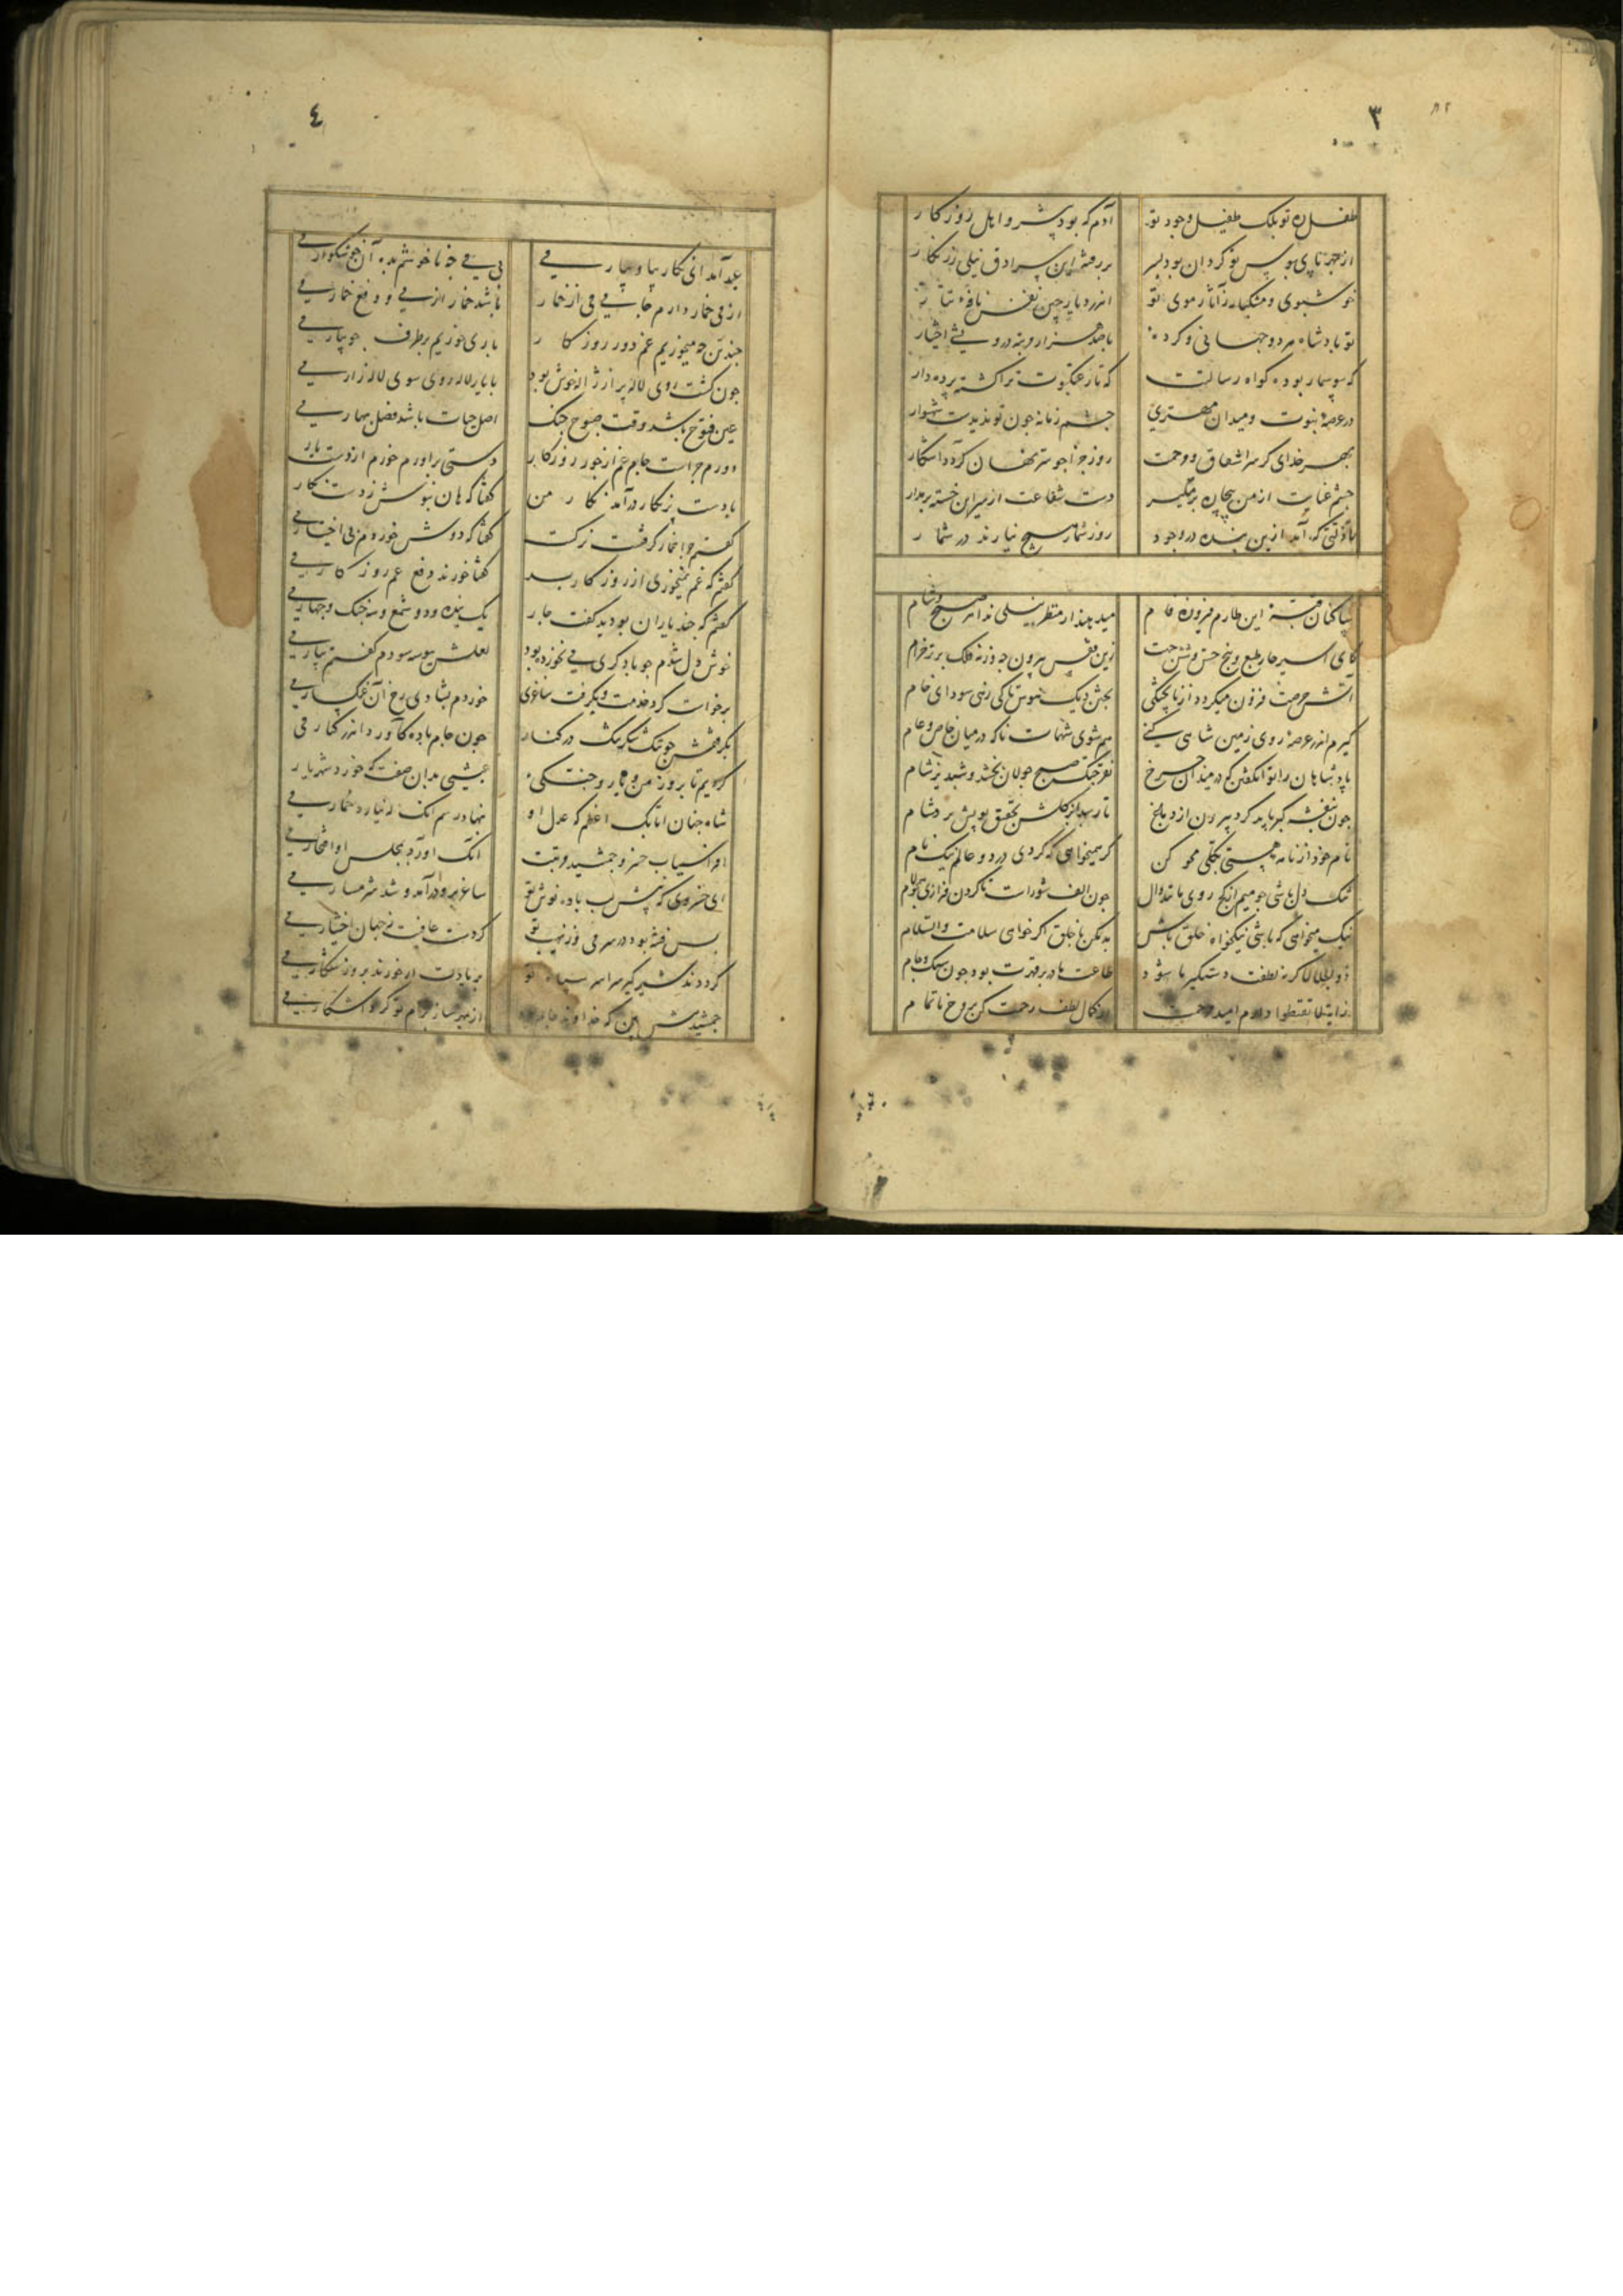 ٣
طفل ره تو بلک طفیل وجود تو
آدم که بود پیشرو اهل روزکار
از بهر پای بوس تو کردان بود سپهر
بر رفته این سرادق نیلی زرنکار
خوشبوی و مشکبار ز آثار موی تو
اندر دیار چین نفس نافهٔ تتار
تو پادشاه هر دو جهانی و کرده
با صد هزار مرتبه درویشی اختیار
که سوسمار بوده کواه رسالتت
که تار عنکبوت ترا کشته پرده دار
در عرصهٔ نبوت و میدان مهتری
چشم زمانه چون تو ندیدست شهسوار
بهر خدای کز سر اشفاق و رحمت
روز جزا جو سر نهان کردد آشکار
چشم عنایت از من بیچاره بر مکیر
دست شفاعت از سر این خسته بر مدار
تا زلتی که آمد ازین بنده در وجود
روز شمار هیچ نیارند در شمار
ساکنان قبهٔ این طارم فیروزه فام
میدهند از منظر نیلی ندا هر صبح و شام
کای اسیر چار طبع و پنج حس و شش جهت
زین قفس بیرون جه و زنه فلک برتر خرام
آتش حرصت فزون میکردد از ناپختکی
بخش دیک هوس تا کی پزی سودای خام
کیرم اندر عرصهٔ روی زمین شاهی کنی
هم شوی شهمات ناکه در میان خاص و عام
پادشاهان را تو انکشتن کم در میدان چرخ
نقره خنک صبح جولان بخشد و شبدیز شام
چون بنفشه کبر باید کرد بیرون از دماغ
تا رسد از کلشن تحقیق بویش بر مشام
نام خود از نامه هستی بکلی محو کن
کر همیخواهی که کردی در دو عالم نیک نام
تنک دل باشی جو میم ار کج روی مانند دال
چون الف شورات تا کردن فرازی جو لام
نیک میخواهی که باشی نیکخواه خلق باش
بد مکن با خلق اکر خواهی سلامت والسلام
ذو الجلالا کر نه لطفت دستکیر ما شود
طاعت ما در برقدرت بود چون سنک و جام
زایت لا تقنطوا دارم امید رحمت
از کمال لطف رحمت کن بروح ناتمام
٤
عید آمد ای نکار بیا و بیار می
بی می چه ناخوشم بده آن خوشکوار می
از می خمار دارم جانی می از خمار
باشد خمار از می و دفع خمار می
چندین چه میخوریم غم دور روزکار
باری خوریم بر طرف جویبار می
چون کشت روی لاله پر از ژاله خوش بود
با یار لاله روی سوی لاله زار می
عین فتوح باشد وقت صبوح چنک
اصل حیات باشد فصل بهار می
دورم جراحت جانم غم از جور روزکار
دستی برآورم خورم از دست یار
با دست پر نکار در آمد نکار من
کفتا که هان بنوش ز دست نکار
کفتم چرا خمار کرفت نرکست
کفتا که دوش خورده‌ام بی اختیار می
کفتم که غم نمیخوری از روزکار بد
کفتا خورند دفع غم روزکار می
کفتم که چند یاران بودید کفت چار
یک بنده و دو شمع و سه چنک و چهار می
خوش دل شدم جو یاد کری می نخورده بود
لعلش ببوسه سودم کفتم بیار می
برخاست کرد خدمت و بکرفت ساغری
خوردم بشادی رخ آن غمکسار می
بکرفتمش جو تنک شکر تنک در کنار
چون جام باده کآورد اندر کنار می
کردیم تا بروز من و یار و جنکی
عیشی بدان صفت که خورد شهریار
شاه جهان اتابک اعظم که عدل او
بنهاد رسم آنک نیارد خمار می
افراسیاب خسرو جمشید مرتبت
آنک آورد بمجلس او افتخار می
ای خسروی که پیش لب باده نوش تو
ساغر برو در آمد و شد شرمسار می
بس فتنه بود در سر می وز نهیب تو
کردست عافیت ز جهان اختیار می
کردد ز شیر کیر سراسر سپاه تو
بر یادت ار خورند بروز شکار می
جمشید پیش ازین که خداوند
از بهر ساز بزم تو کرد آشکار می